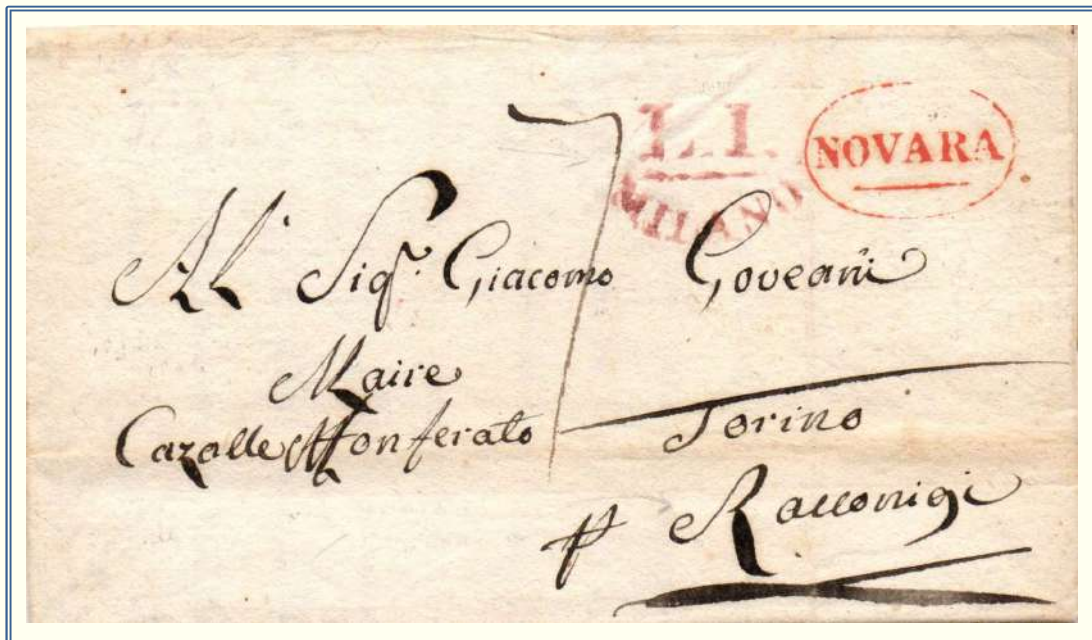 L.I.
MILANO
NOVARA
7
All' Sigr. Giacomo Goveani
Maire
Cazalle Monferato
Torino
p Racconigi